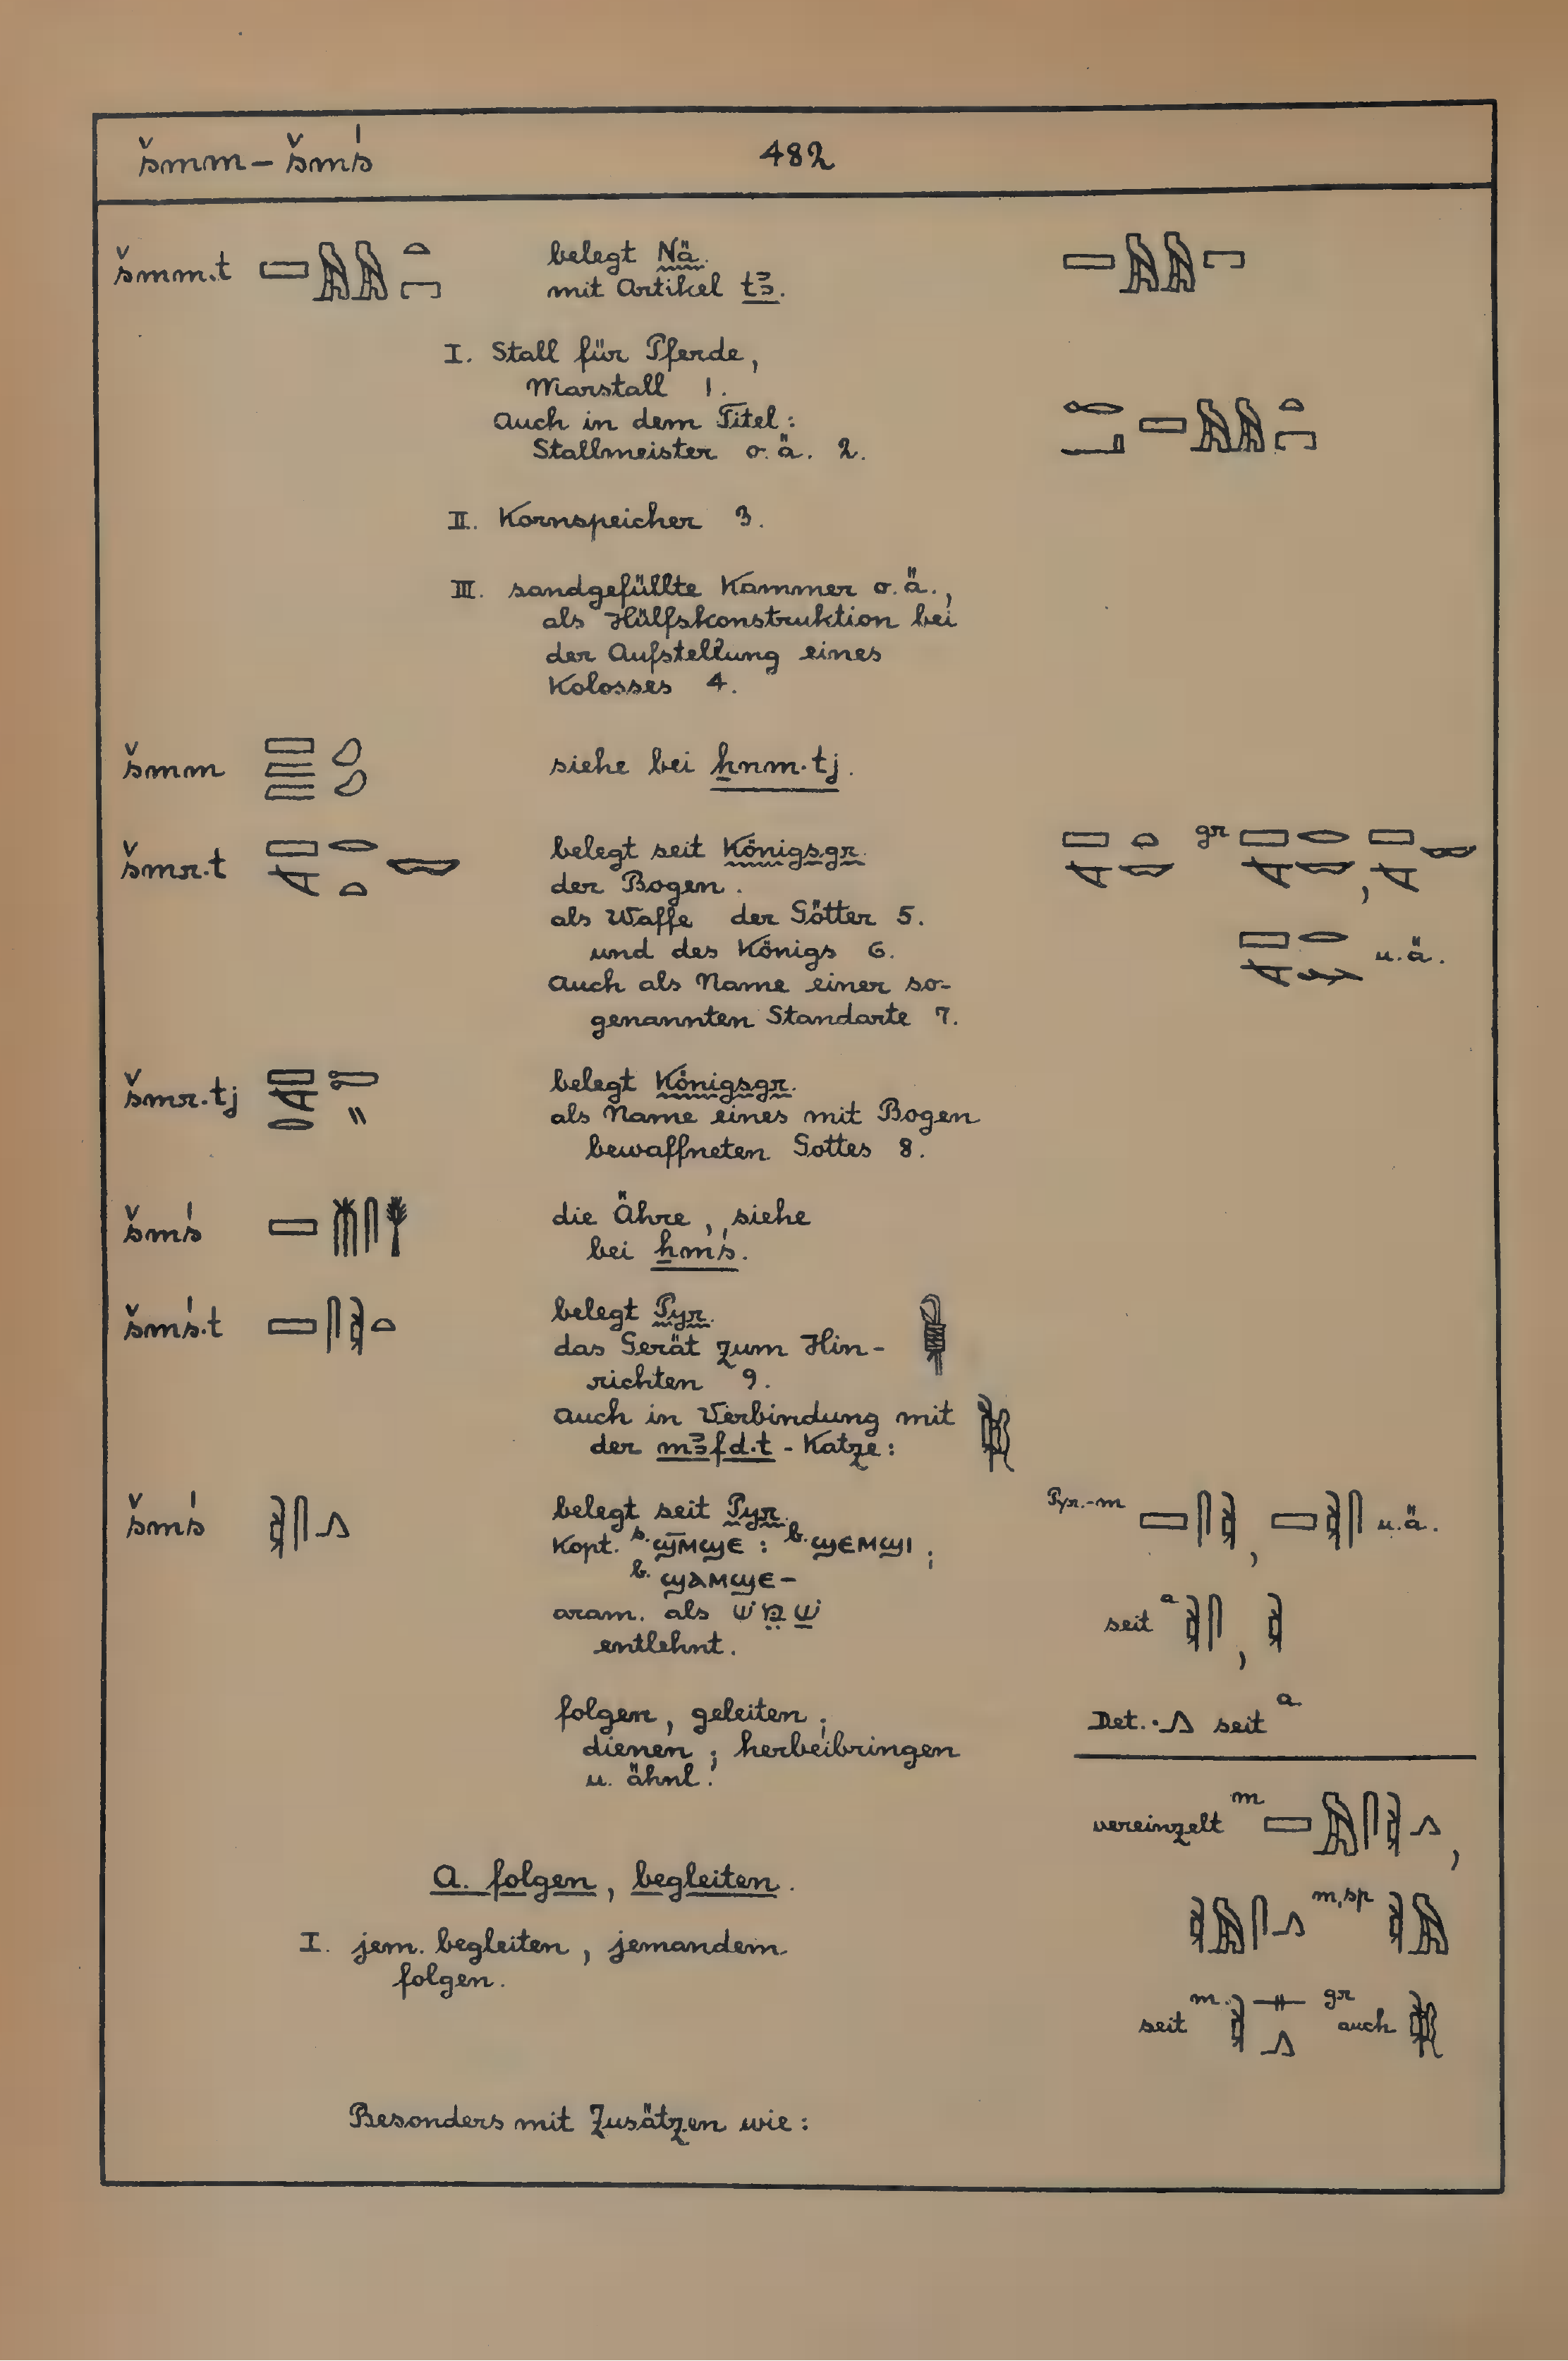 šmm – šmś 482
šmm.t 𓈙𓅓𓅓𓏏𓉐 belegt Nä. 𓈙𓅓𓅓𓉐
mit Artikel tꜣ.
I. Stall für Pferde,
Marstall 1.
Auch in dem Titel: 𓁹𓂝𓈙𓅓𓅓𓏏𓉐
Stallmeister o.ä. 2.
II. Kornspeicher 3.
III. sandgefüllte Kammer o.ä.,
als Hülfskonstruktion bei
der Aufstellung eines
Kolosses 4.
šmm siehe bei ẖnm.tj.
šmr.t belegt seit Königsgr. gr
der Bogen.
als Waffe der Götter 5.
und des Königs 6. u.ä.
Auch als Name einer so-
genannten Standarte 7.
šmr.tj belegt Königsgr.
als Name eines mit Bogen
bewaffneten Gottes 8.
šmś die Ähre, siehe
bei ẖmś.
šmś.t 𓈙𓋴𓌞𓏏 belegt Pyr.
das Gerät zum Hin-
richten 9.
Auch in Verbindung mit
der mꜣfd.t - Katze:
šmś 𓌞𓋴𓂻 belegt seit Pyr. Pyr.-m 𓈙𓋴𓌞, 𓈙𓌞𓋴 u.ä.
Kopt. s. ϣⲙ̄ϣⲉ : b. ϣⲉⲙϣⲓ ;
b. ϣⲁⲙϣⲉ–
aram. als שמש seit a 𓌞𓋴, 𓌞
entlehnt.
folgen, geleiten; Det. 𓂻 seit a.
dienen; herbeibringen
u. ähnl.
vereinzelt m 𓈙𓅓𓋴𓌞𓂻,
A. folgen, begleiten.
𓌞𓅓𓋴𓂻 m,sp 𓌞𓅓
I. jem. begleiten, jemandem
folgen.
seit m. 𓌞𓊃𓂻 gr auch
Besonders mit Zusätzen wie: